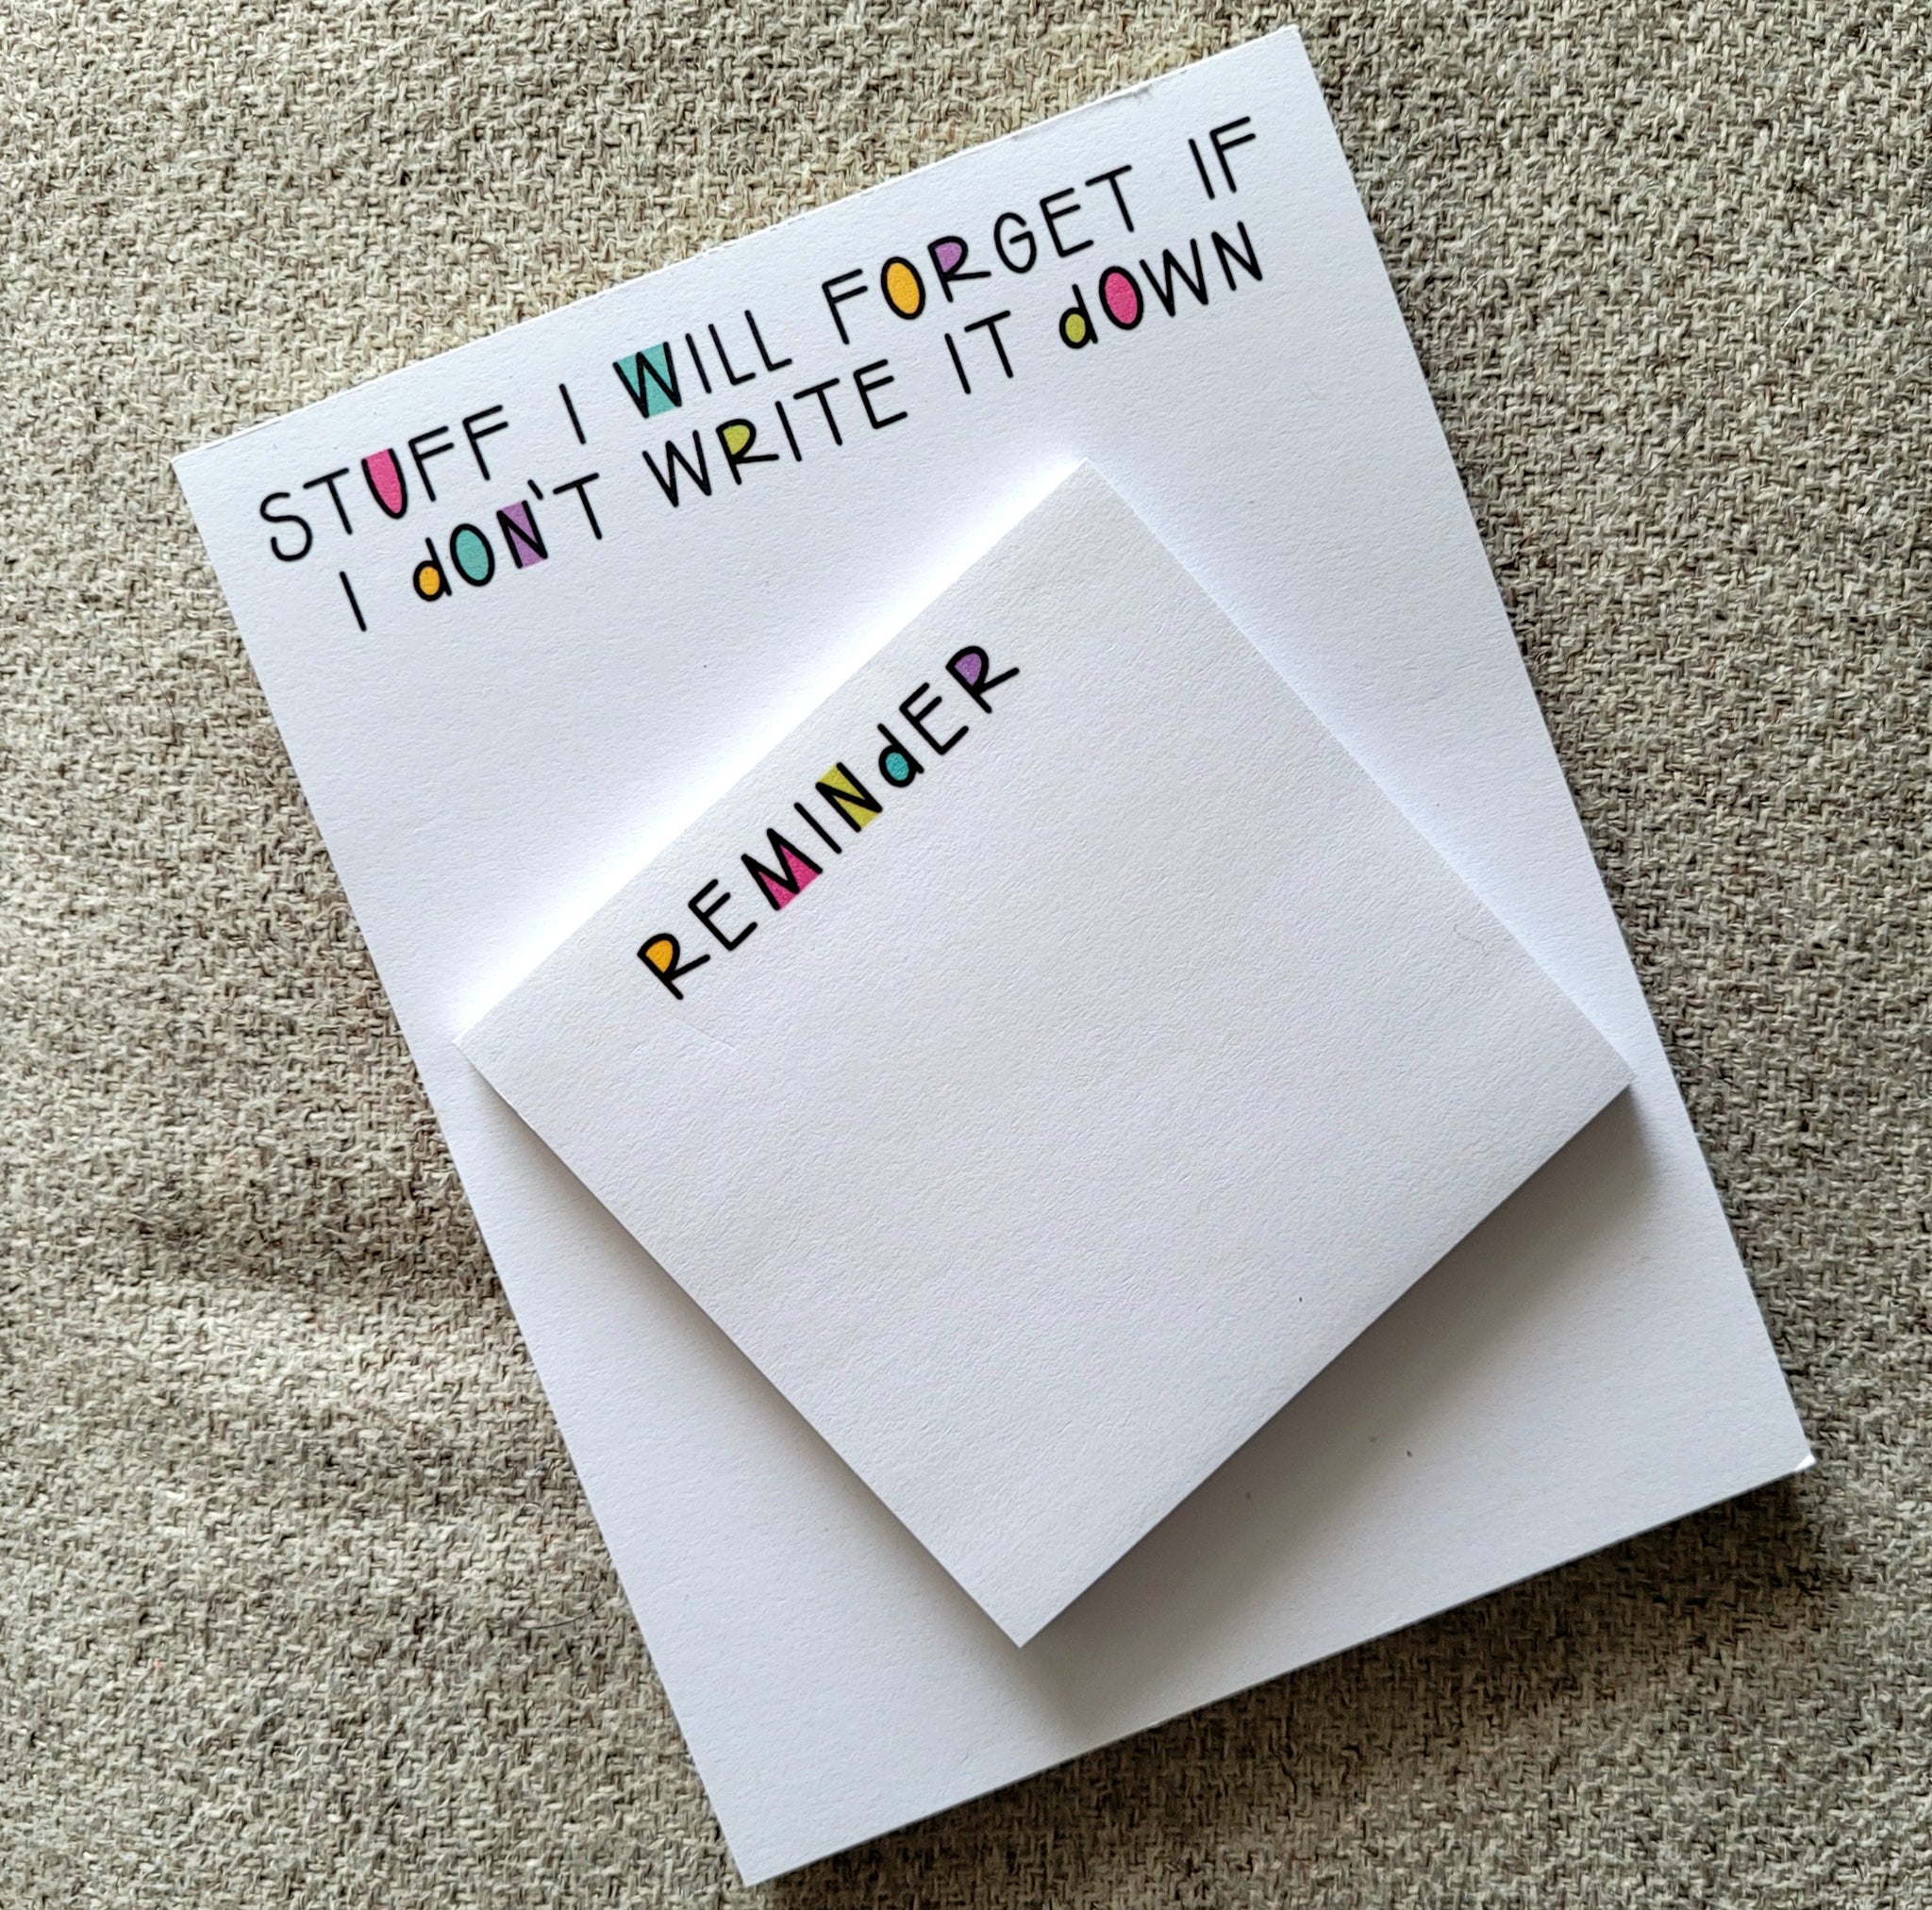 STUFF I WILL FORGET IF
I dON'T WRITE IT dOWN
REMINdER